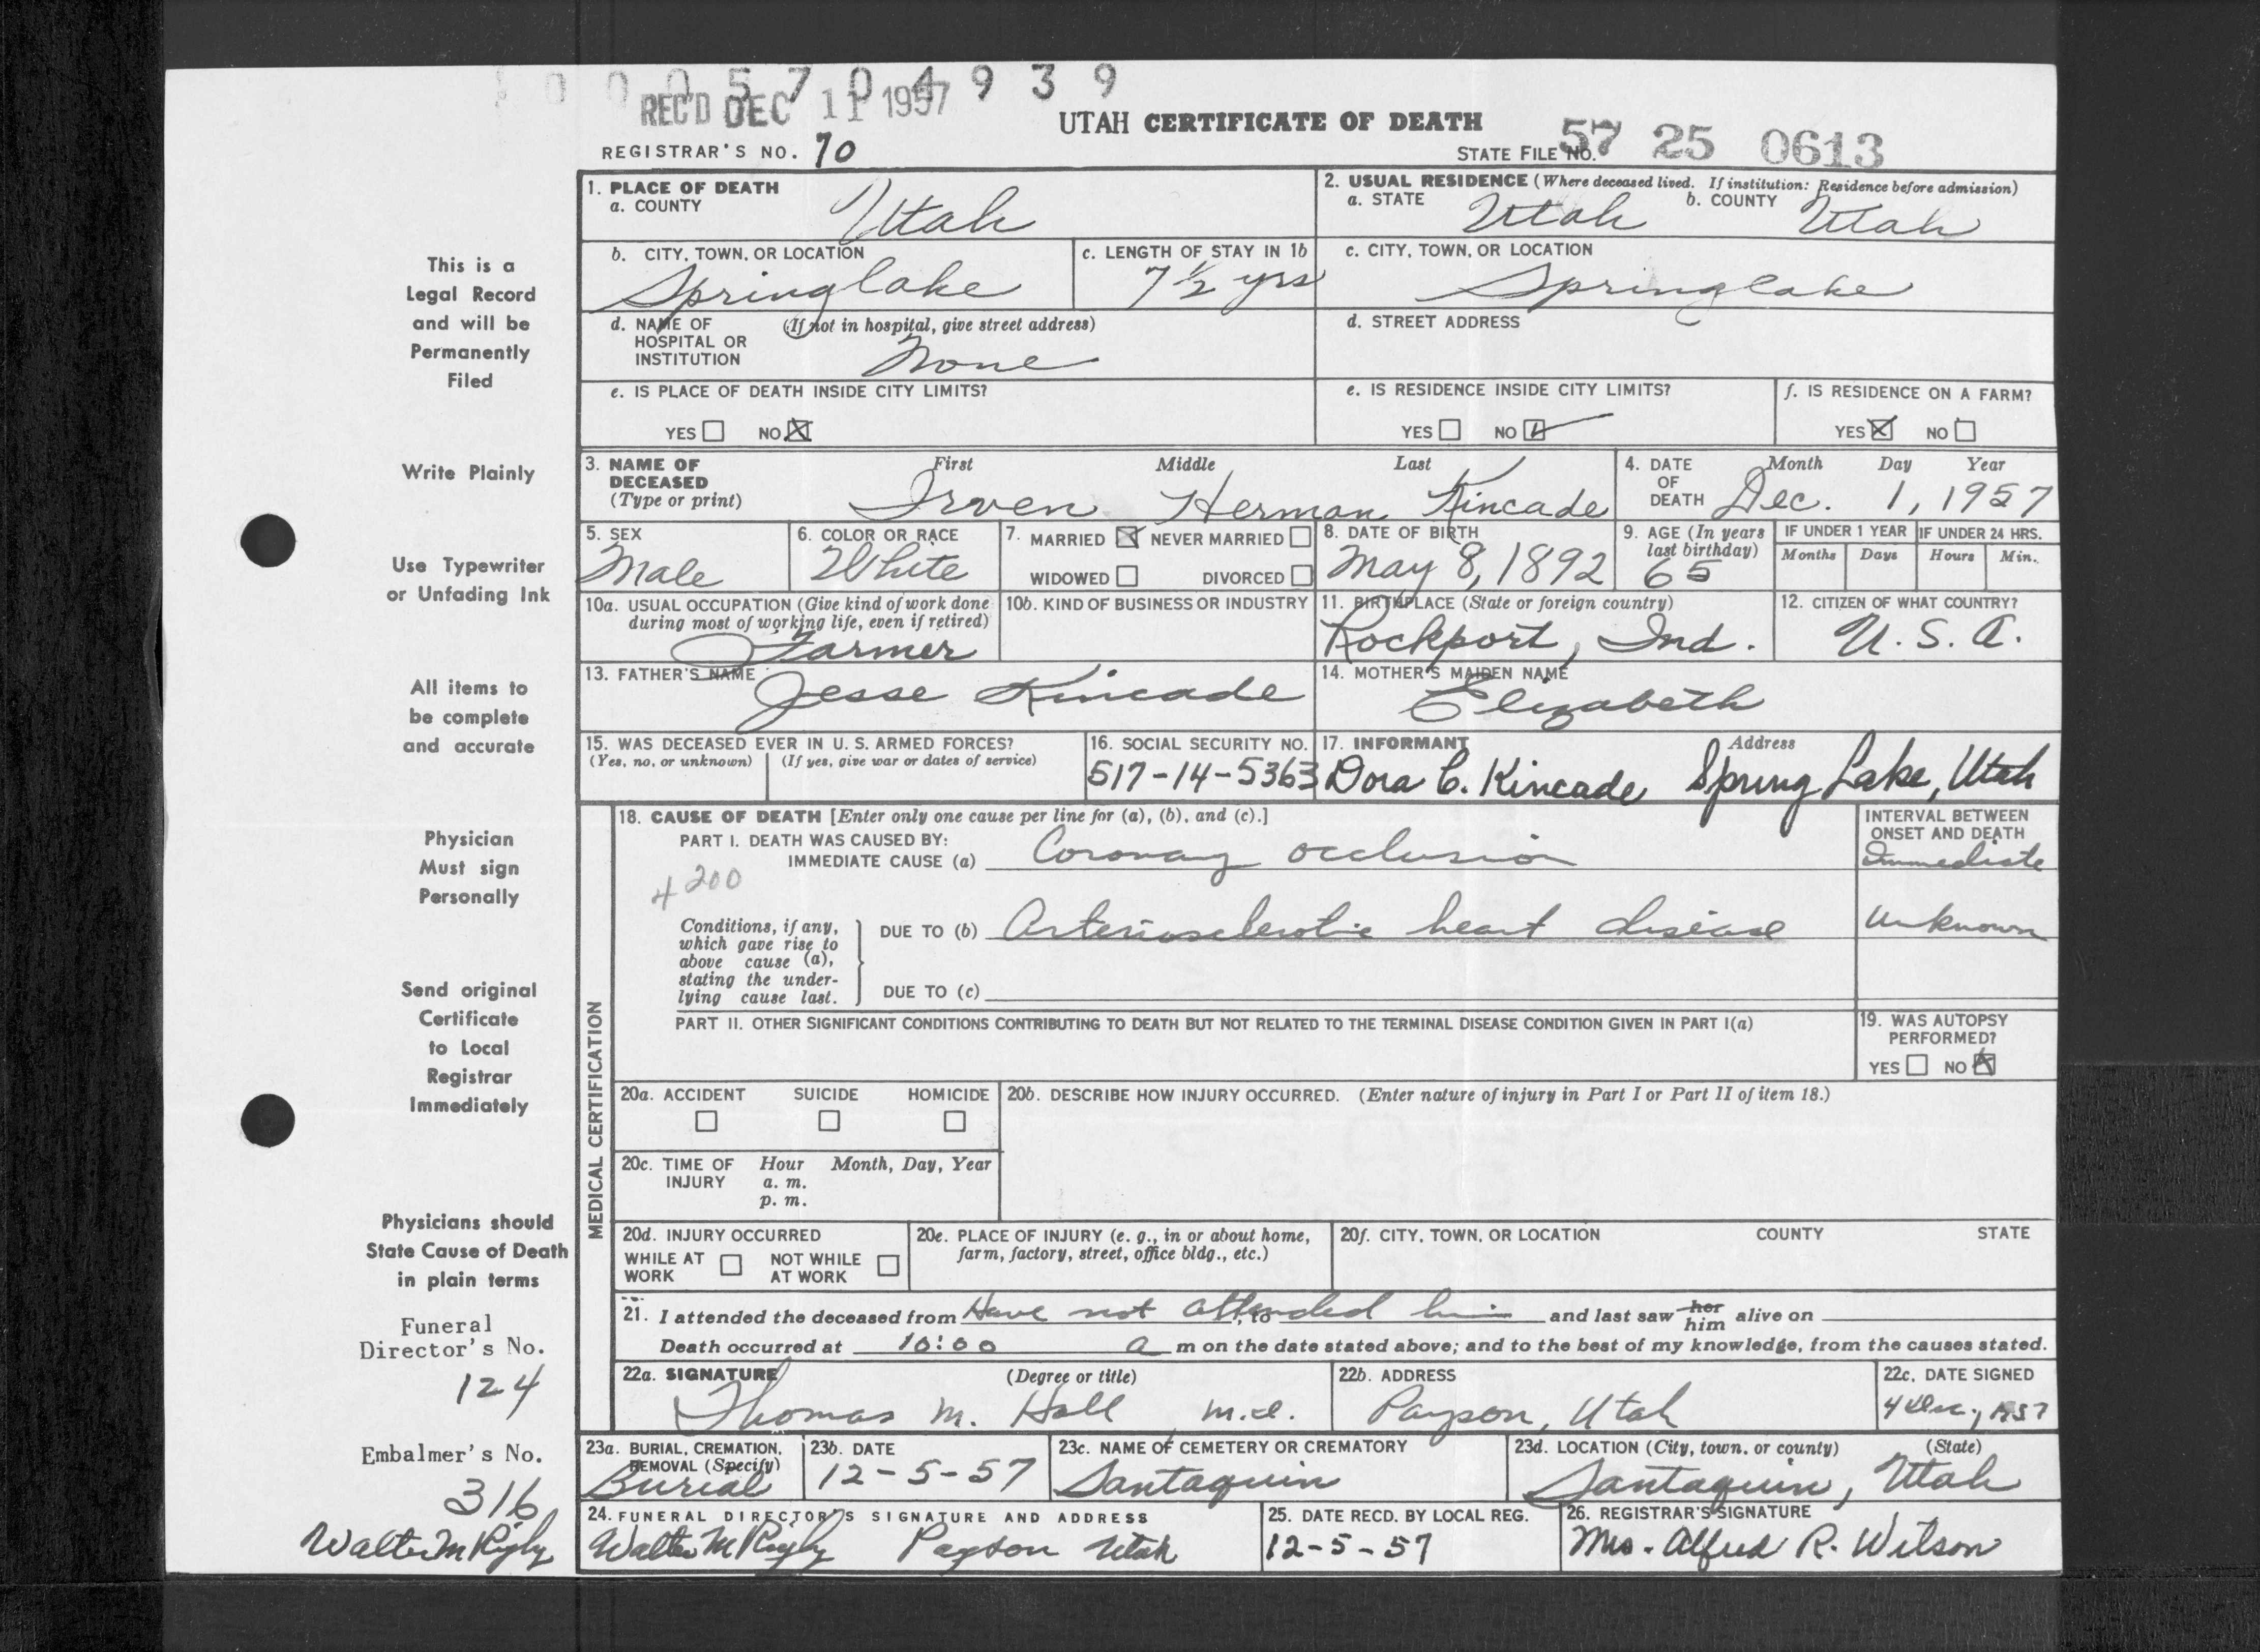 0 0 0 5 7 0 4 9 3 9
REC'D DEC 11 1957
UTAH CERTIFICATE OF DEATH
REGISTRAR'S NO. 70
STATE FILE NO. 57 25 0613
1. PLACE OF DEATH
a. COUNTY Utah
2. USUAL RESIDENCE (Where deceased lived. If institution: Residence before admission)
a. STATE Utah b. COUNTY Utah
b. CITY, TOWN, OR LOCATION Springlake
c. LENGTH OF STAY IN 1b 7 1/2 yrs
c. CITY, TOWN, OR LOCATION Springlake
d. NAME OF HOSPITAL OR INSTITUTION (If not in hospital, give street address) None
d. STREET ADDRESS
e. IS PLACE OF DEATH INSIDE CITY LIMITS?
YES NO X
e. IS RESIDENCE INSIDE CITY LIMITS?
YES NO
f. IS RESIDENCE ON A FARM?
YES X NO
3. NAME OF DECEASED (Type or print)
First Middle Last
Irven Herman Kincade
4. DATE OF DEATH Month Day Year
Dec. 1, 1957
5. SEX Male
6. COLOR OR RACE White
7. MARRIED X NEVER MARRIED
WIDOWED DIVORCED
8. DATE OF BIRTH May 8, 1892
9. AGE (In years last birthday) 65
IF UNDER 1 YEAR Months Days
IF UNDER 24 HRS. Hours Min.
10a. USUAL OCCUPATION (Give kind of work done during most of working life, even if retired) Farmer
10b. KIND OF BUSINESS OR INDUSTRY
11. BIRTHPLACE (State or foreign country) Rockport, Ind.
12. CITIZEN OF WHAT COUNTRY? U.S.A.
13. FATHER'S NAME Jesse Kincade
14. MOTHER'S MAIDEN NAME Elizabeth
15. WAS DECEASED EVER IN U. S. ARMED FORCES?
(Yes, no, or unknown) (If yes, give war or dates of service)
16. SOCIAL SECURITY NO. 517-14-5363
17. INFORMANT Address
Dora C. Kincade Spring Lake, Utah
MEDICAL CERTIFICATION
18. CAUSE OF DEATH [Enter only one cause per line for (a), (b), and (c).]
INTERVAL BETWEEN ONSET AND DEATH
PART I. DEATH WAS CAUSED BY:
IMMEDIATE CAUSE (a) Coronary occlusion Immediate
4200
Conditions, if any, which gave rise to above cause (a), stating the underlying cause last.
DUE TO (b) Arteriosclerotic heart disease Unknown
DUE TO (c)
PART II. OTHER SIGNIFICANT CONDITIONS CONTRIBUTING TO DEATH BUT NOT RELATED TO THE TERMINAL DISEASE CONDITION GIVEN IN PART I(a)
19. WAS AUTOPSY PERFORMED?
YES NO X
20a. ACCIDENT SUICIDE HOMICIDE
20b. DESCRIBE HOW INJURY OCCURRED. (Enter nature of injury in Part I or Part II of item 18.)
20c. TIME OF INJURY Hour Month, Day, Year
a. m.
p. m.
20d. INJURY OCCURRED
WHILE AT WORK NOT WHILE AT WORK
20e. PLACE OF INJURY (e. g., in or about home, farm, factory, street, office bldg., etc.)
20f. CITY, TOWN, OR LOCATION COUNTY STATE
21. I attended the deceased from Have not attended him , to and last saw her him alive on
Death occurred at 10:00 a m on the date stated above; and to the best of my knowledge, from the causes stated.
22a. SIGNATURE (Degree or title)
Thomas M. Hall M.D.
22b. ADDRESS Payson, Utah
22c. DATE SIGNED 4 Dec., 1957
23a. BURIAL, CREMATION, REMOVAL (Specify) Burial
23b. DATE 12-5-57
23c. NAME OF CEMETERY OR CREMATORY Santaquin
23d. LOCATION (City, town, or county) (State)
Santaquin, Utah
24. FUNERAL DIRECTOR'S SIGNATURE AND ADDRESS
Walter M Rigby Payson Utah
25. DATE RECD. BY LOCAL REG. 12-5-57
26. REGISTRAR'S SIGNATURE
Mrs. Alfred R. Wilson
This is a
Legal Record
and will be
Permanently
Filed
Write Plainly
Use Typewriter
or Unfading Ink
All items to
be complete
and accurate
Physician
Must sign
Personally
Send original
Certificate
to Local
Registrar
Immediately
Physicians should
State Cause of Death
in plain terms
Funeral
Director's No.
124
Embalmer's No.
316
Walter M Rigby